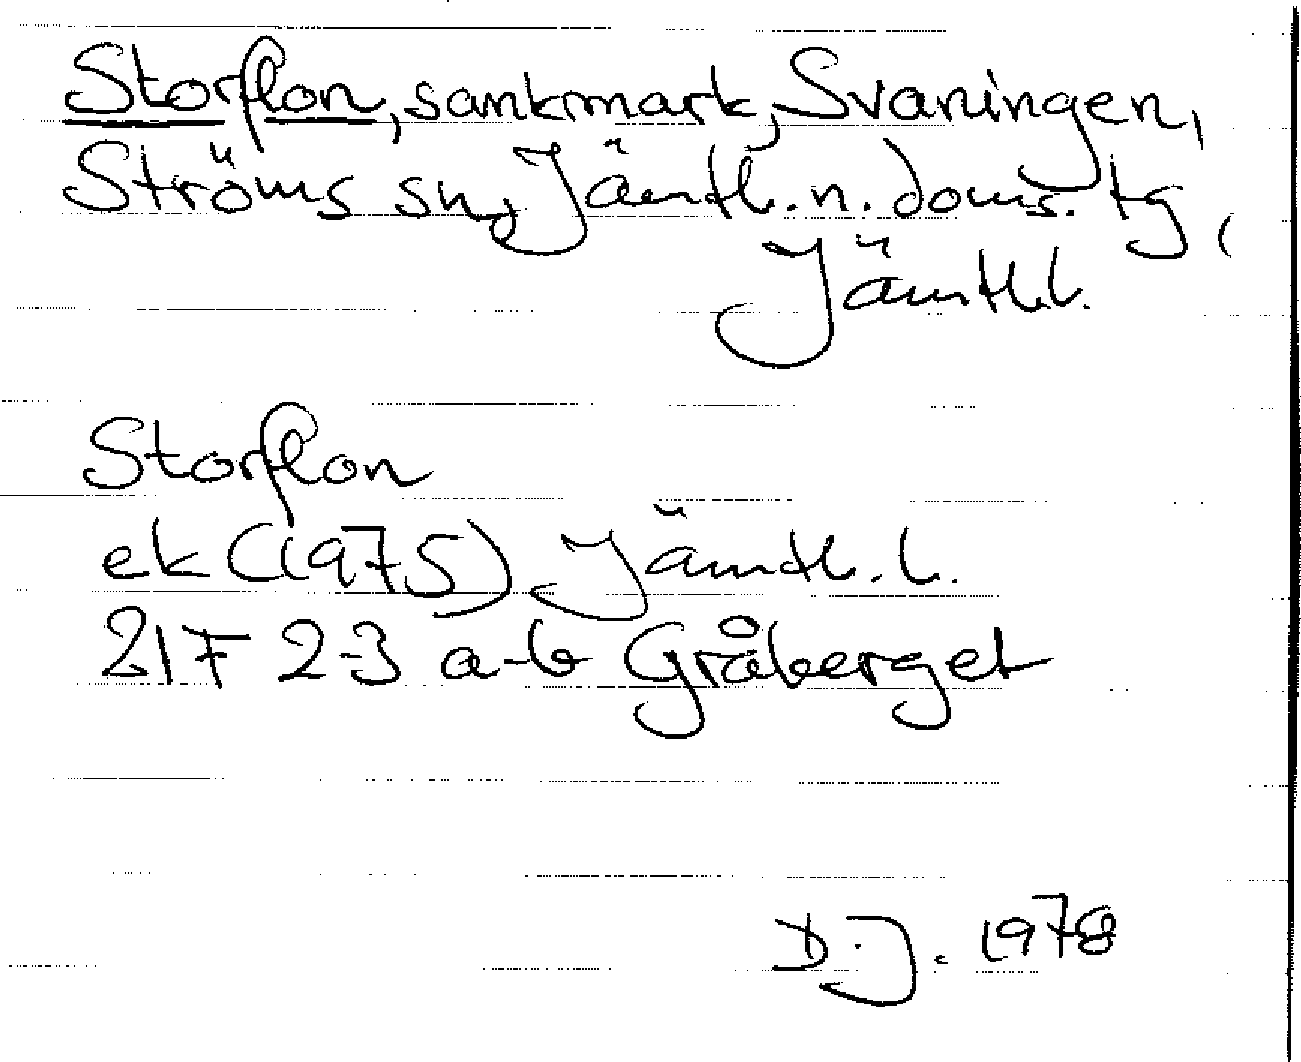 Storflon, sankmark, Svaningen,
Ströms sn, Jämtl. n. doms. tg,
Jämtl.l.
Storflon
ek (1975) Jämtl. l.
21F 2-3 a-b Gråberget
D.J. 1978